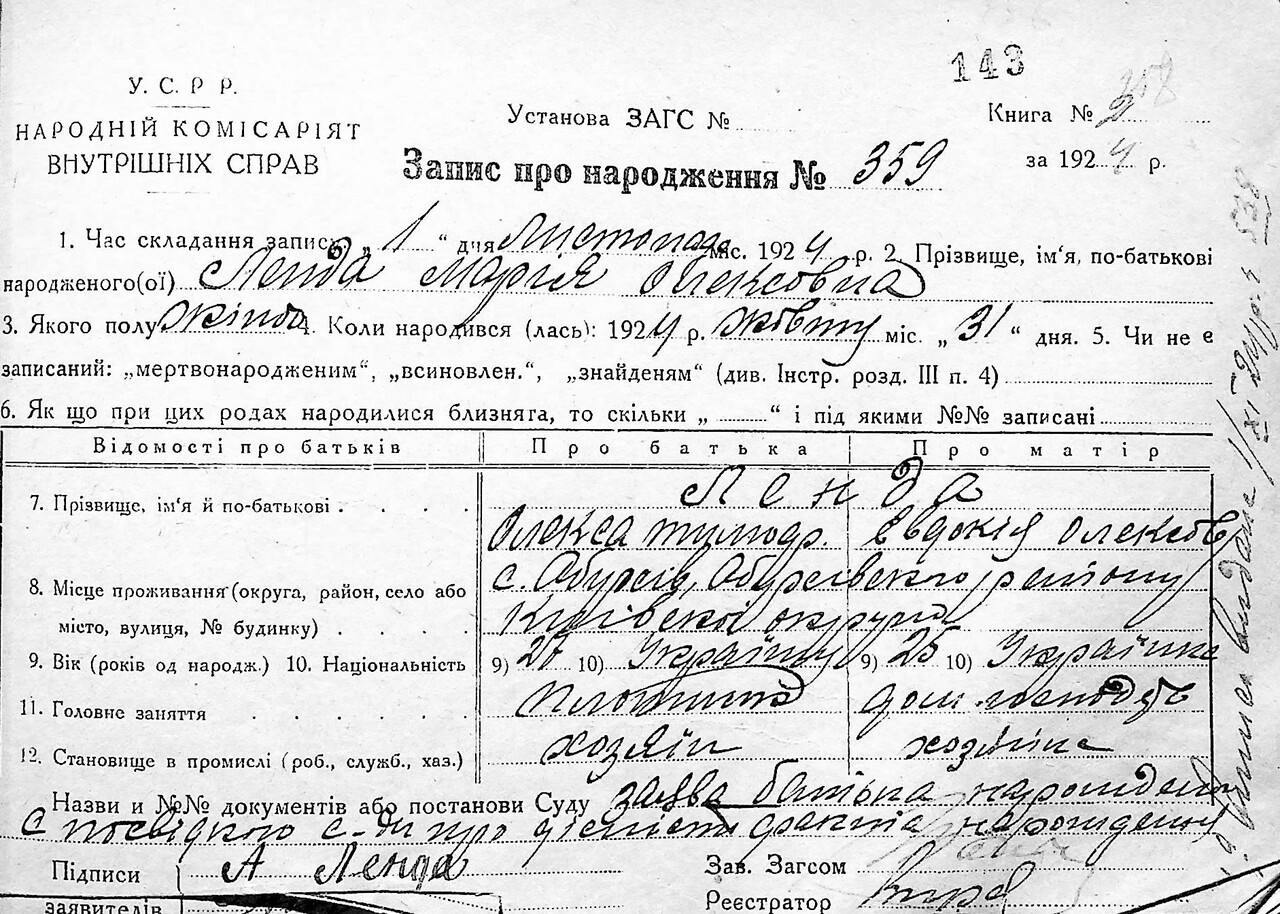 143
У. С. Р Р.
Установа ЗАГС №
Книга № 2
358
НАРОДНІЙ КОМІСАРІЯТ
ВНУТРІШНІХ СПРАВ
за 1924 р.
Запис про народження № 359
1. Час складання запису „ 1 “ дня Листопада міс. 1924 р. 2. Прізвище, ім‘я, по-батькові
народженого(ої) Ленда Марія Олексовна
3. Якого полу жіноч 4. Коли народився (лась): 1924 р. жовтн міс. „ 31 “ дня. 5. Чи не є
записаний: „мертвонародженим“, „всиновлен.“, „знайденям“ (див. Інстр. розд. III п. 4)
6. Як що при цих родах народилися близняга, то скільки „ “ і під якими №№ записані
Відомості про батьків Про батька Про матір
7. Прізвище, ім‘я й по-батькові Ленда
Олекса Евдокія Олексов
8. Місце проживання (округа, район, село або с. Обухів, Обухівского району
місто, вулиця, № будинку) Київскої округи
9. Вік (років од народж.) 10. Національність 9) 27 10) Українц 9) 25 10) Українка
11. Головне заняття плотник дом господ
12. Становище в промислі (роб., служб., хаз.) хозяїн хозяїнка
Назви и №№ документів або постанови Суду заява батька народжен
с посвідкою с-ди про дісність факта народження
Підписи А Ленда Зав. Загсом
заявителів Реєстратор